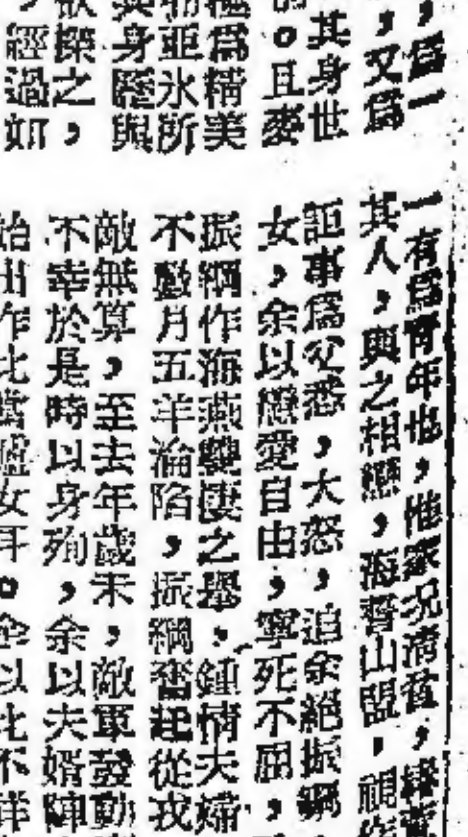 ，爲一
，又爲
其身世
。且麥
爲精美
亞氷所
身歷與
之，
經過如
一有爲青年也，惟家况清貧，
其人，與之相戀，海誓山盟，願作
詎事爲父悉，大怒，迫余絕振綱
女，余以戀愛自由，寧死不屈，
振綱作海燕雙棲之舉，鍾情夫婦
不數月五羊淪陷，振綱奮起從戎
敵無算，至去年歲末，敵軍發動
不幸於是時以身殉，余以夫婿陣
始出作此當壚女耳。余以此不祥